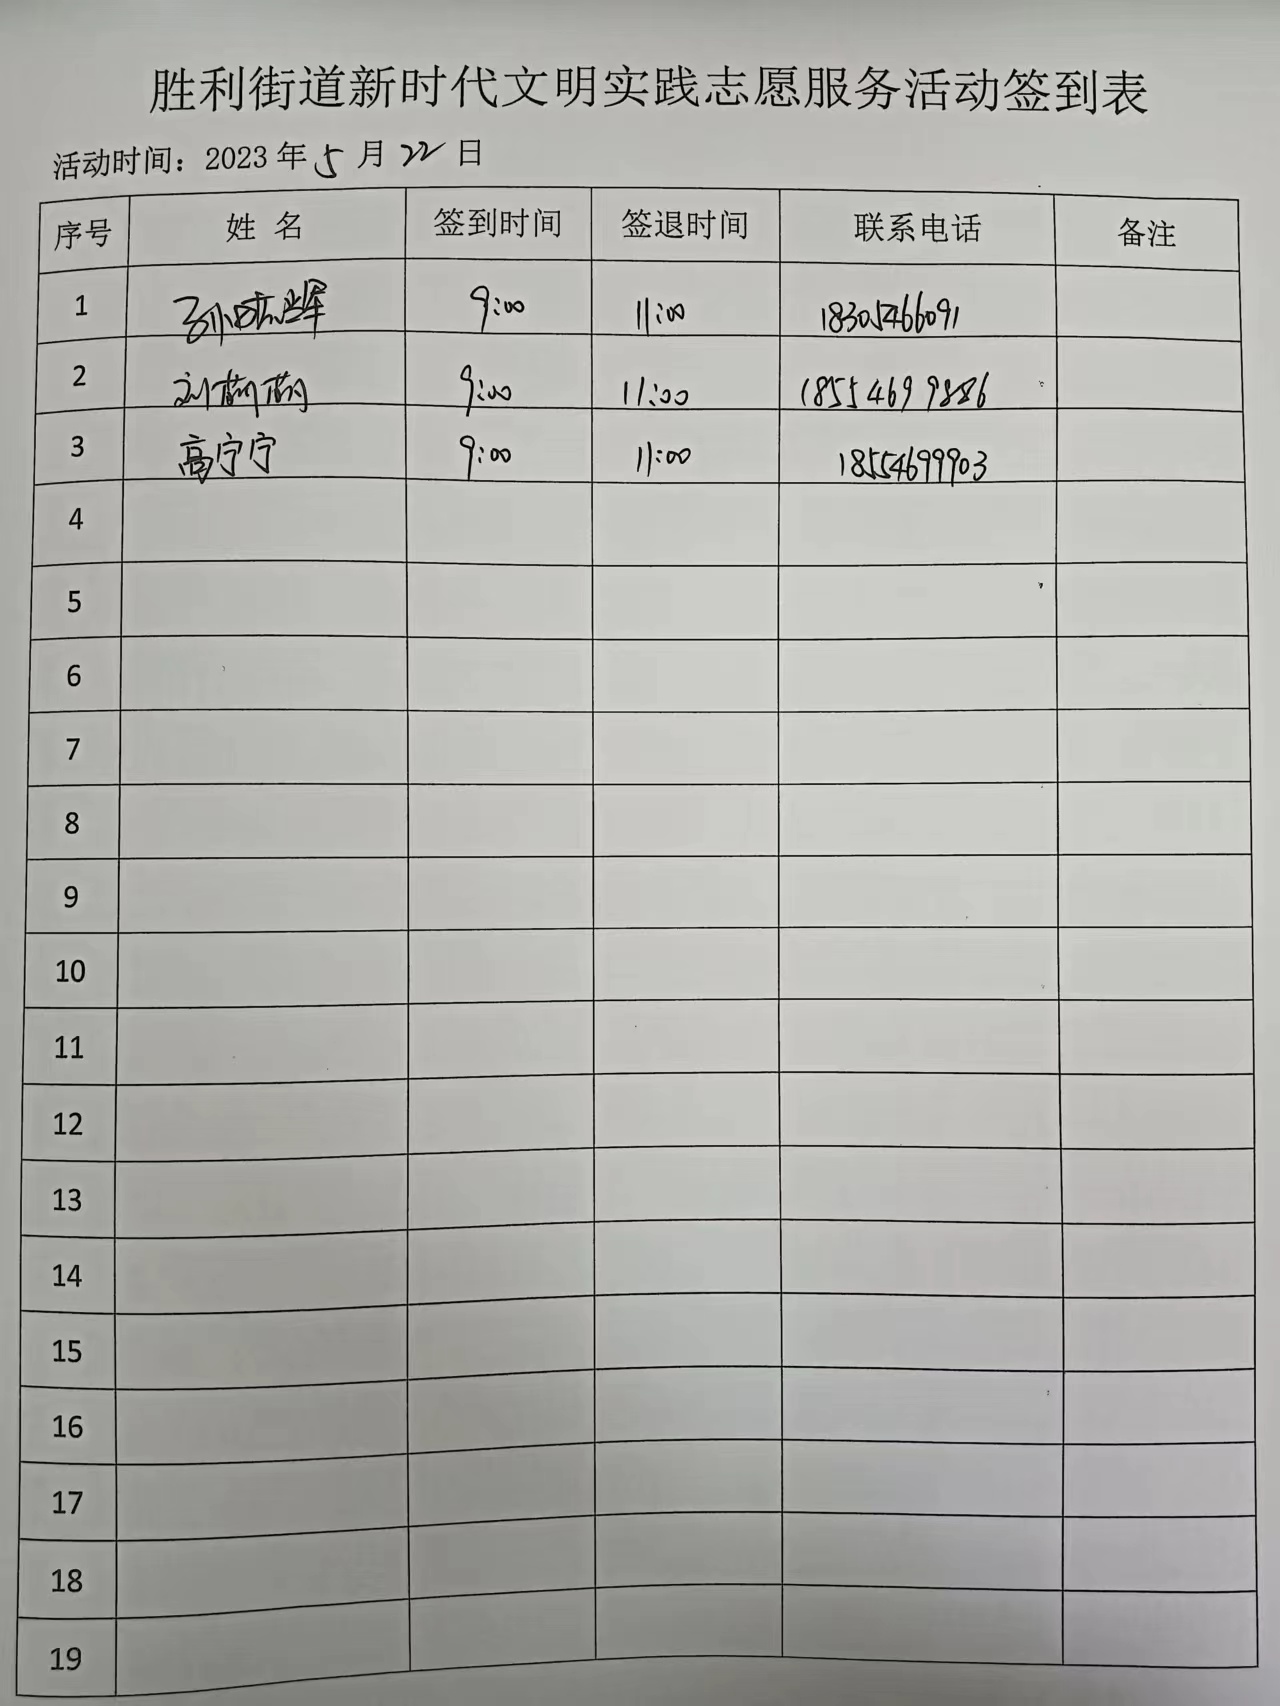 胜利街道新时代文明实践志愿服务活动签到表
活动时间：2023年5月22日
序号 姓名 签到时间 签退时间 联系电话 备注
1 9:00 11:00 18305466091
2 9:00 11:00 18554699886
3 高宁宁 9:00 11:00 18554699903
4
5
6
7
8
9
10
11
12
13
14
15
16
17
18
19